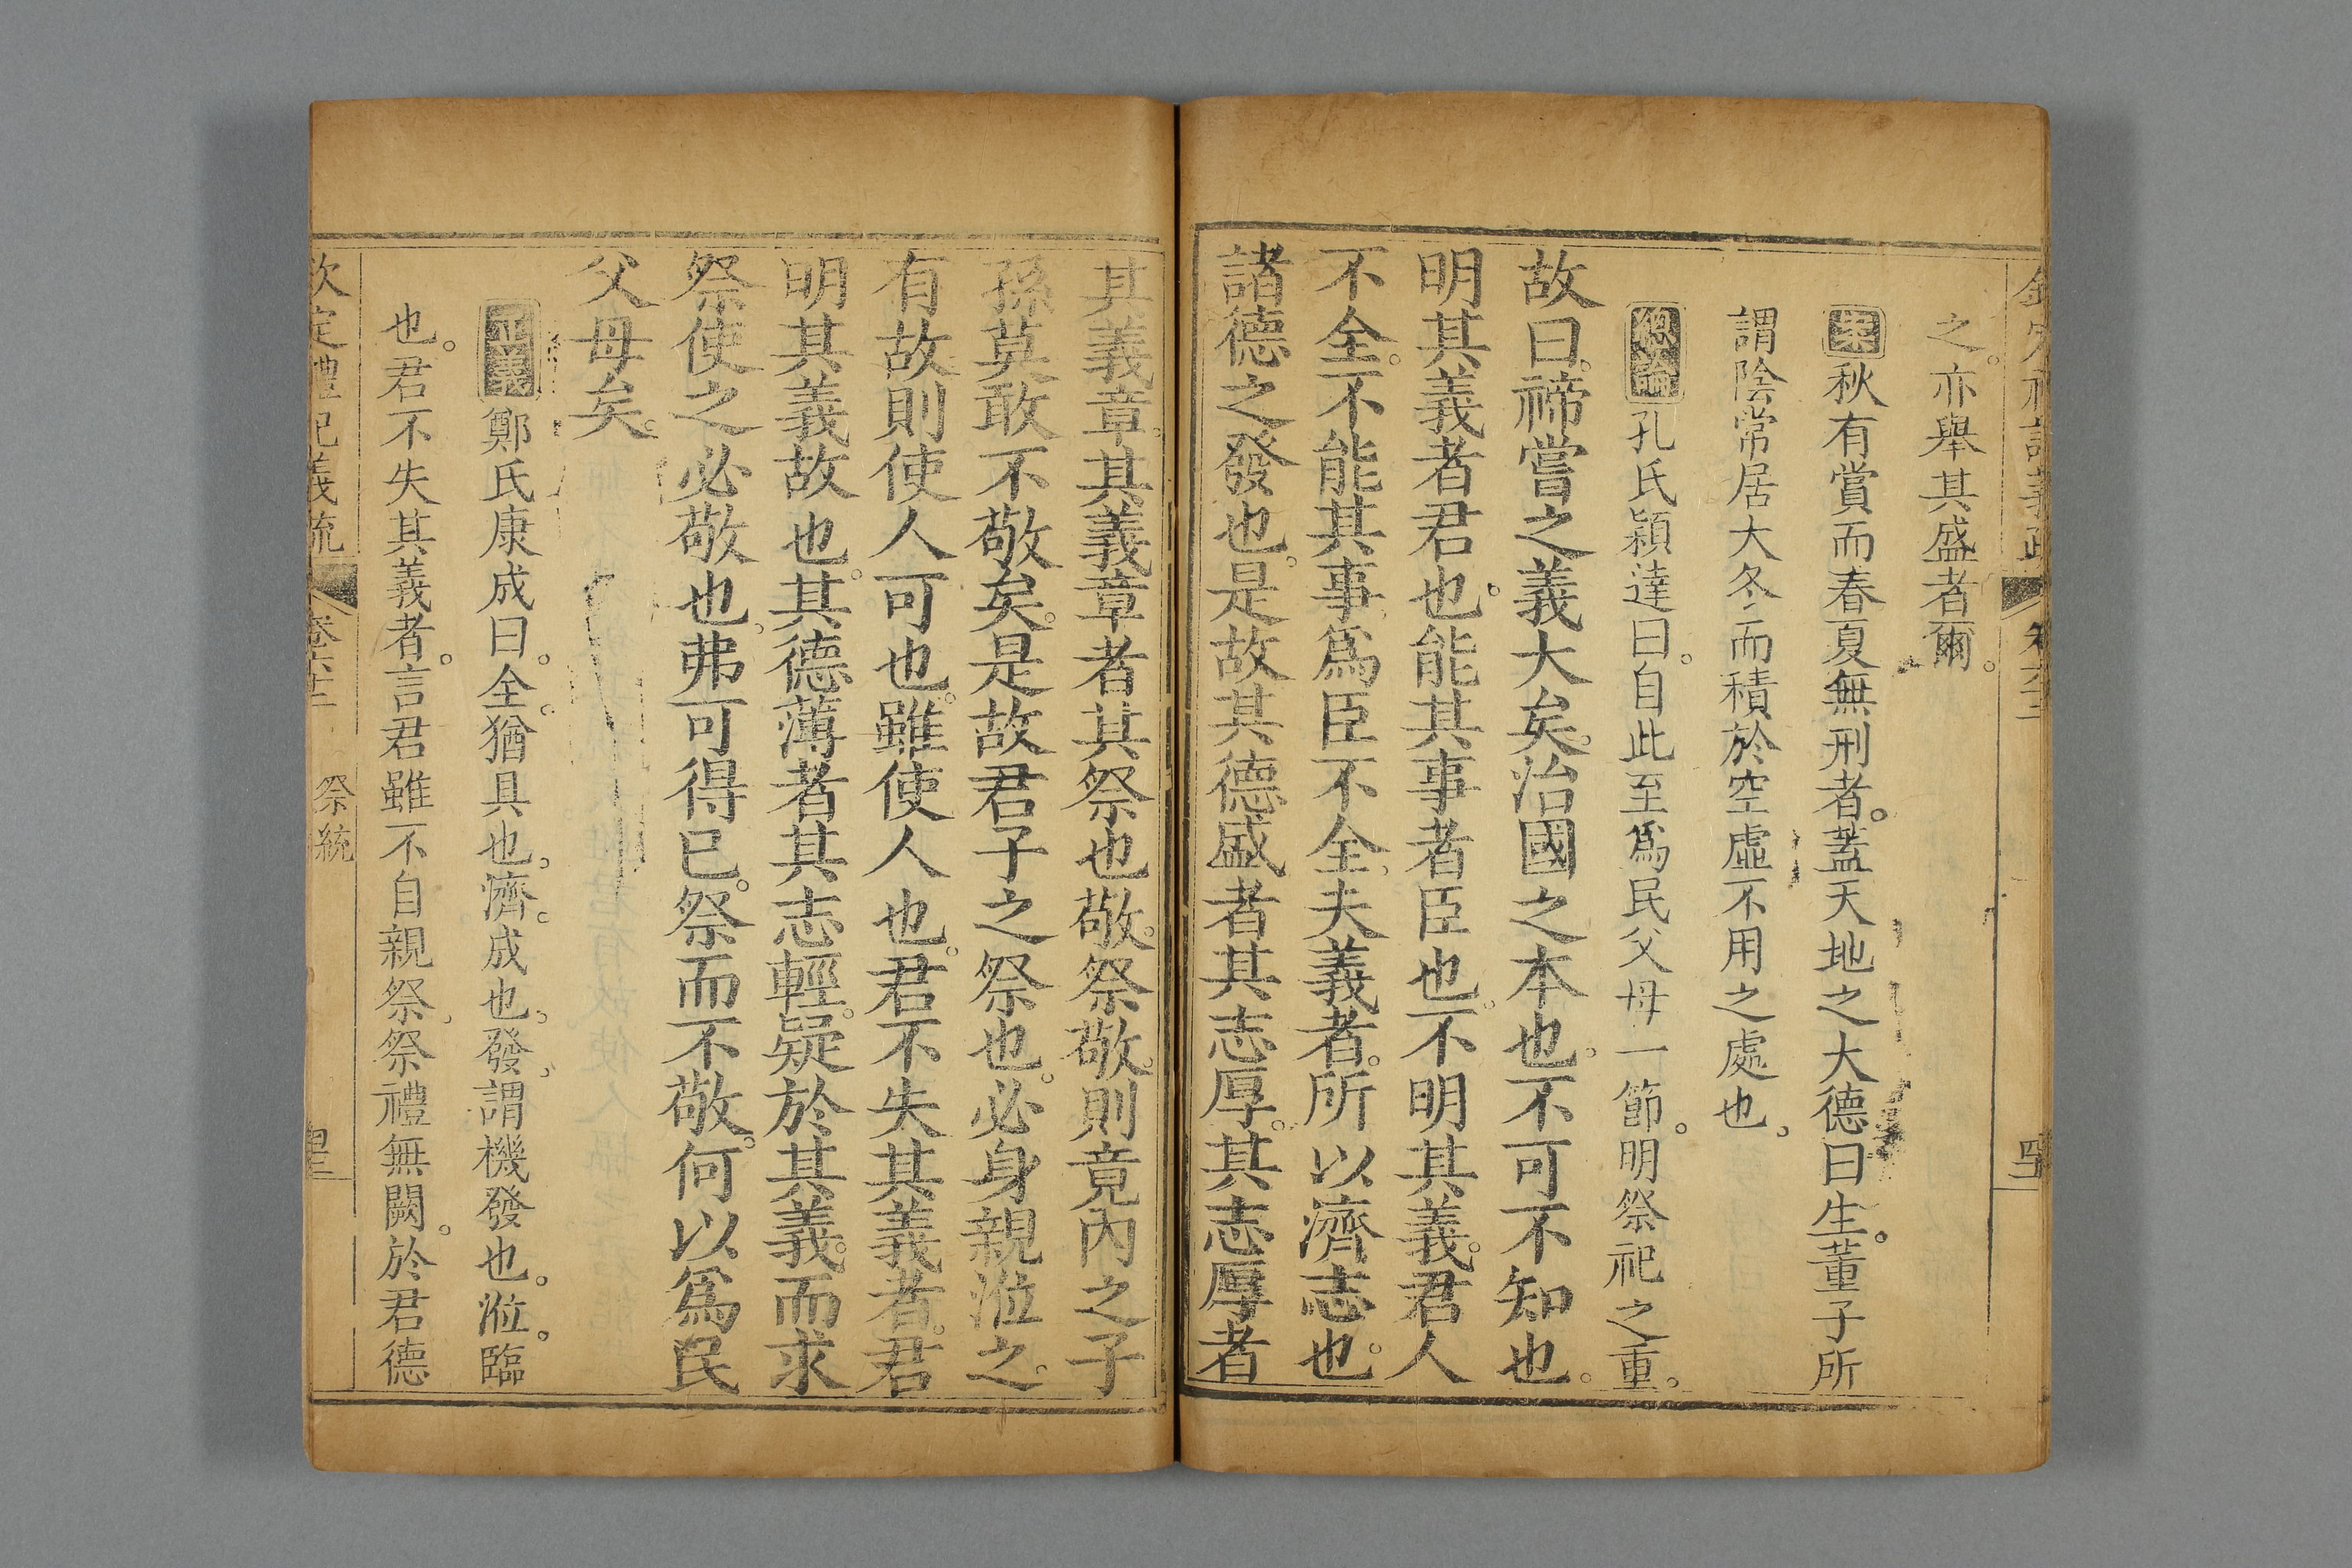 之。亦舉其盛者爾。
案秋有賞而春夏無刑者。蓋天地之大德曰生。董子所
謂陰常居大冬、而積於空虛不用之處也、
總論孔氏穎達曰。自此至爲民父母一節。明祭祀之重。
故曰。禘嘗之義大矣。治國之本也。不可不知也。
明其義者君也。能其事者臣也。不明其義。君人
不全。不能其事、爲臣不全、夫義者。所以濟志也。
諸德之發也。是故其德盛者其志厚。其志厚者
其義章。其義章者其祭也敬。祭敬。則竟內之子
孫莫敢不敬矣。是故君子之祭也。必身親涖之。
有故則使人可也。雖使人也。君不失其義者。君
明其義故也。其德薄者其志輕。疑於其義。而求
祭使之必敬也、弗可得已。祭而不敬。何以爲民
父母矣。
正義鄭氏康成曰。全。猶具也、濟。成也、發、謂機發也。涖。臨
也。君不失其義者。言君雖不自親祭、祭禮無闕。於君德
欽定禮記義疏 卷六十二 祭統